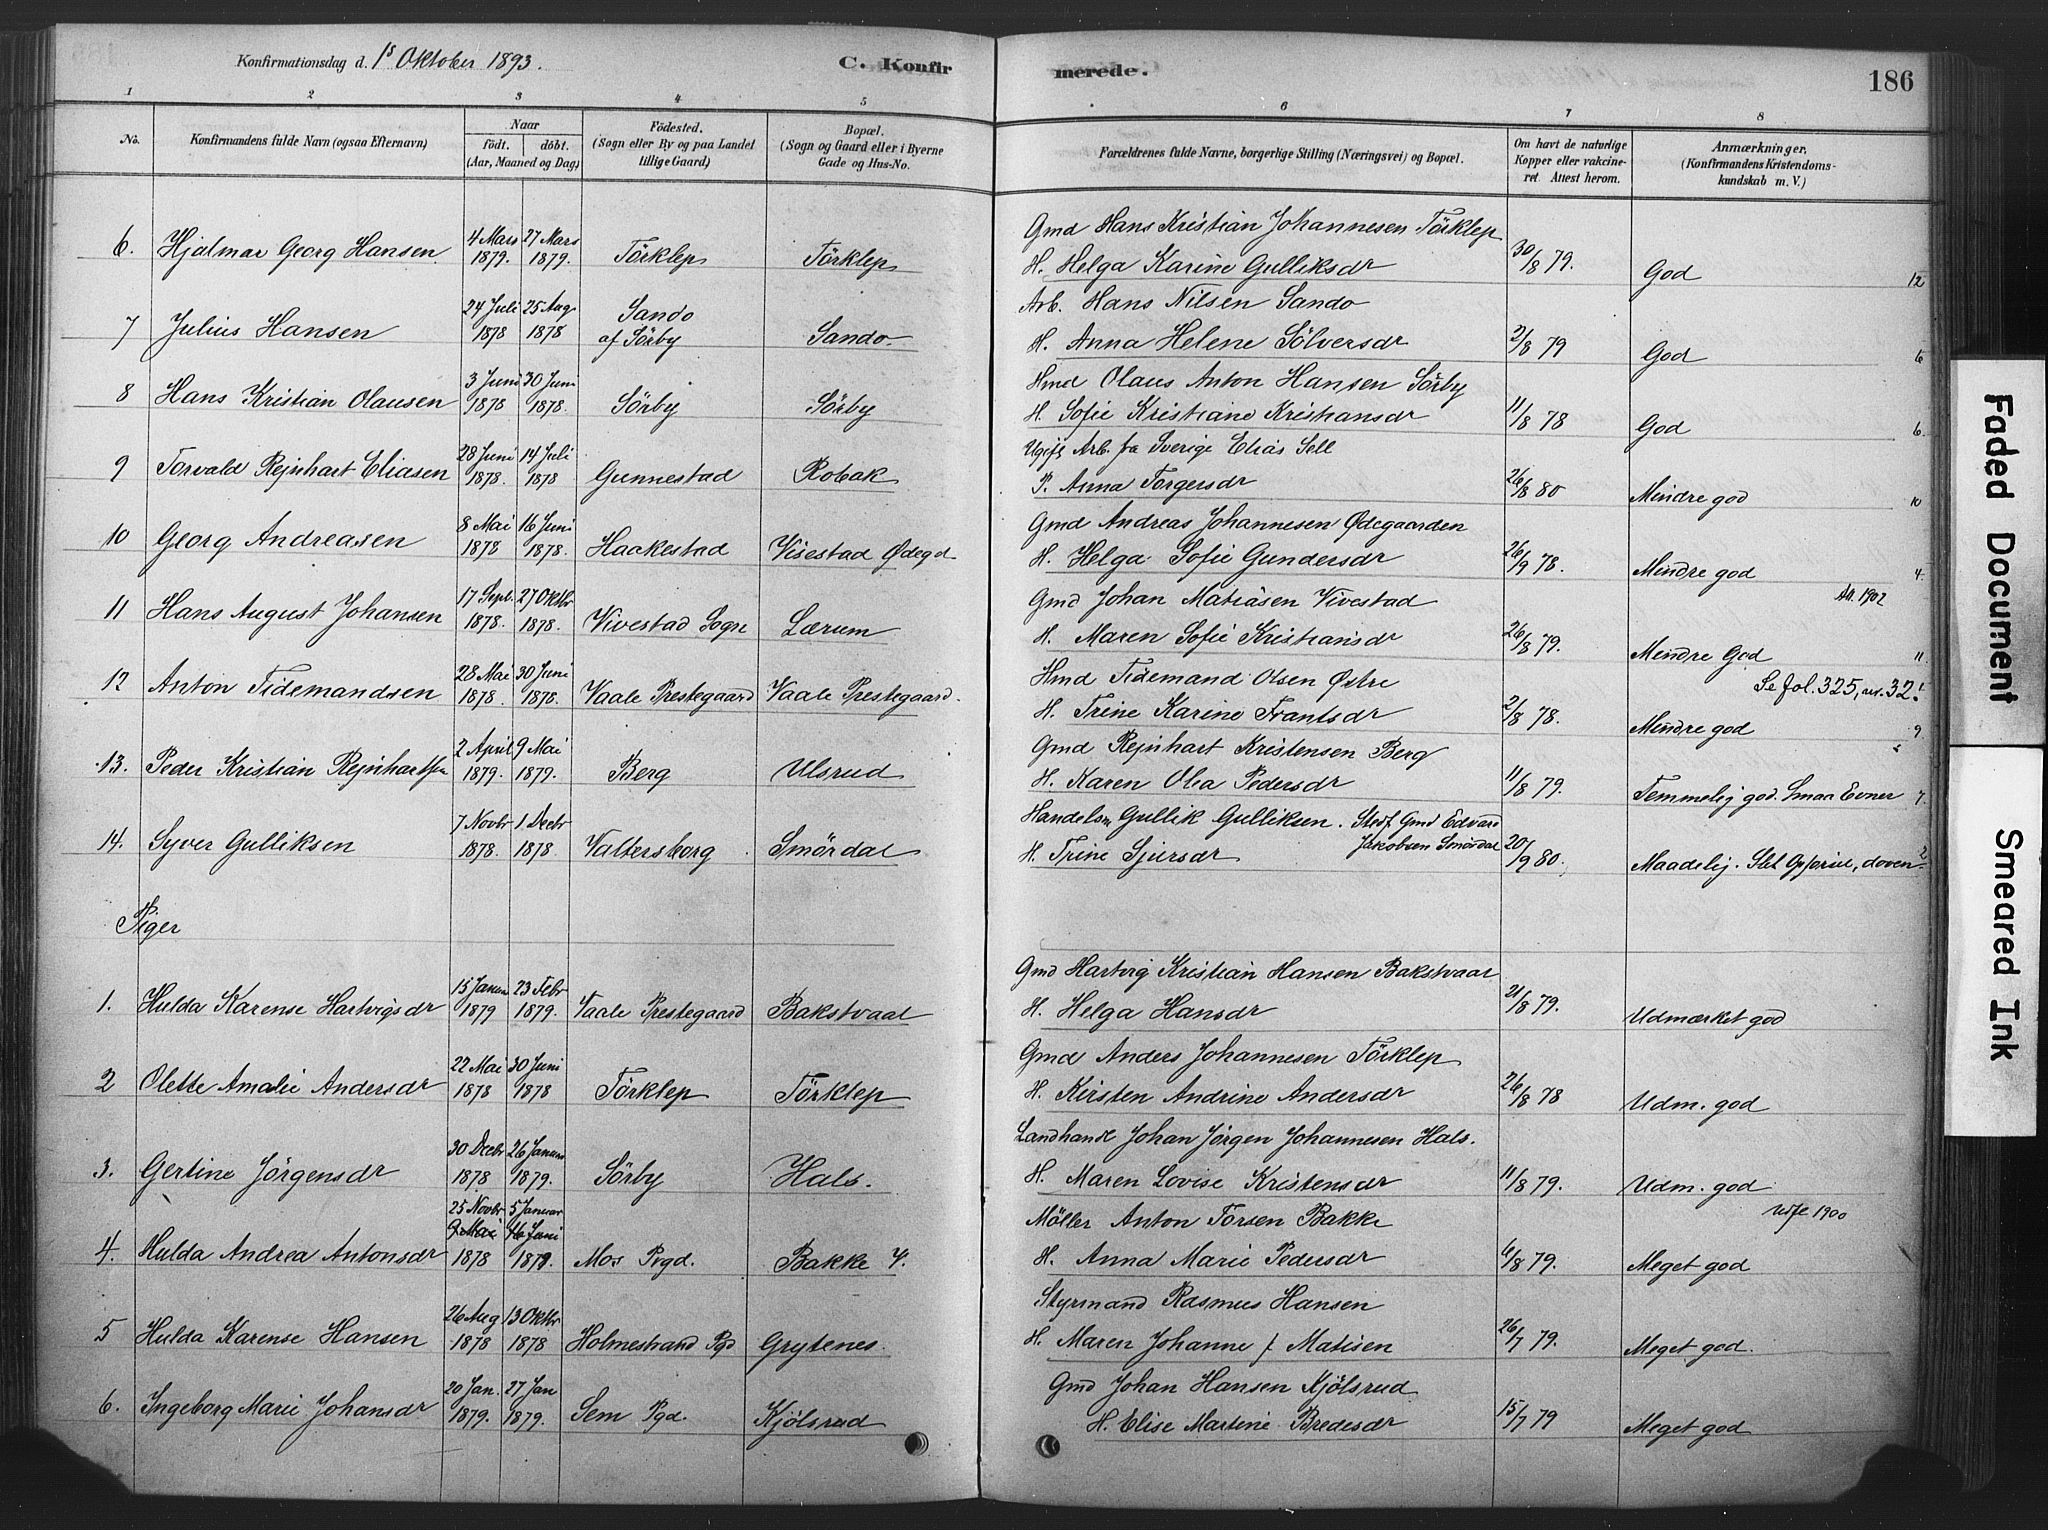 Konfirmationsdag d. 1s Oktober 1893.
C. Konfirmerede.
186
1 2 3 4 5 6 7 8
No.
Konfirmandens fulde Navn (ogsaa Efternavn)
Naar
födt. döbt.
(Aar, Maaned og Dag)
Födested.
(Sogn eller By og paa Landet
tillige Gaard)
Bopæl.
(Sogn og Gaard eller i Byerne
Gade og Hus-No.
Forældrenes fulde Navne, borgerlige Stilling (Næringsvei) og Bopæl.
Om havt de naturlige
Kopper eller vakcine-
ret. Attest herom.
Anmærkninger.
(Konfirmandens Kristendoms-
kundskab m. V.)
4 Mars 27 Mars Gmd Hans Kristian Johannesen Törklep
6. Hjalmar Georg Hansen 1879. 1879. Törklep Törklep H. Helga Karine Gulliksdr 30/8 79. God 12
24 Juli 25 Aug Sando Arb. Hans Nilsen Sando
7 Julius Hansen 1878 1878 af Sörby Sando. H. Anna Helene Sölversdr 2/8 79 God 6
3 Juni 30 Juni Hmd Olaus Anton Hansen Sörby
8 Hans Kristian Olausen 1878 1878. Sörby Sörby H. Sofie Kristiane Kristiansdr 11/8 78 God 6.
28 Juni 14 Juli Ugift Arb. fra Sverige Elias Sell
9 Torvald Rejnhart Eliasen 1878. 1878 Gunnestad Robak P. Anna Torgersdr 26/8 80 Mindre god 10
8 Mai 16 Juni Gmd Andreas Johannesen Ødegaarden
10 Georg Andreasen 1878 1878. Haakestad Visestad Ødegd H. Helga Sofie Gundersdr 26/9 78. Mindre god 4.
17 Sept. 27 Oktbr Gmd Johan Matiasen Vivestad Att. 1902
11 Hans August Johansen 1878. 1878. Vivestad Sogn Lærum H. Maren Sofie Kristiansdr 26/8 79. Mindre God 11.
28 Mai 30 Juni Hmd Tidemand Olsen Østre Se fol. 325, nr. 32!
12 Anton Tidemandsen 1878. 1878. Vaale Prestegaard Vaale Prestegaard. H. Trine Karine Frantsdr 2/8 78. Mindre god 9
2 April 9 Mai Gmd Rejnhart Kristensen Berg
13. Peder Kristian Rejnhartsen 1879. 1879. Berg Ulsrud H. Karen Olea Pedersdr 11/8 79. Temmelig god. Smaa Evner 7.
7 Novbr 1 Decbr Handelsm Gullik Gulliksen. Stedf. Gmd Edvard
14. Syver Gulliksen 1878. 1878 Valtersborg Smördal H. Trine Sjursdr Jakobsen Smördal 20/9 80. Maadelig. Slet Opførsel, doven. 2
Piger
15 Januar 23 Febr Gmd Hartvig Kristian Hansen Bakstvaal
1. Hulda Karense Hartvigsdr 1879 1879. Vaale Prestegaard Bakstvaal H. Helga Hansdr 21/8 79. Udmærket god
22 Mai 30 Juni Gmd Anders Johannesen Törklep
2 Olette Amalie Andersdr 1878 1878 Törklep Törklep H. Kirsten Andrine Andersdr 26/8 78 Udm. god
30 Decbr 26 Januar Landhandl Johan Jörgen Johannesen Hals.
3. Gertine Jörgensdr 1878 1879. Sörby Hals. H. Maren Lovise Kristensdr 11/8 79. Udm. god
25 Novbr 5 Januar
9 Mai 16 Juni Möller Anton Torsen Bakke 1900
4. Hulda Andrea Antonsdr 1878 1879. Mos Pgd. Bakke Y. H. Anna Marie Pedersdr 6/8 79. Meget god
26 Aug 13 Oktbr Styrmand Rasmus Hansen
5 Hulda Karense Hansen 1878 1878 Holmestrand Pgd Grytenes. H. Maren Johanne f Matisen 26/7 79. Meget god.
20 Jan. 27 Jan Gmd Johan Hansen Kjölsrud
6. Ingeborg Marie Johansdr 1879. 1879. Sem Pgd. Kjölsrud H. Elise Martine Bredesdr 15/7 79 Meget god
Faded Document
Smeared Ink